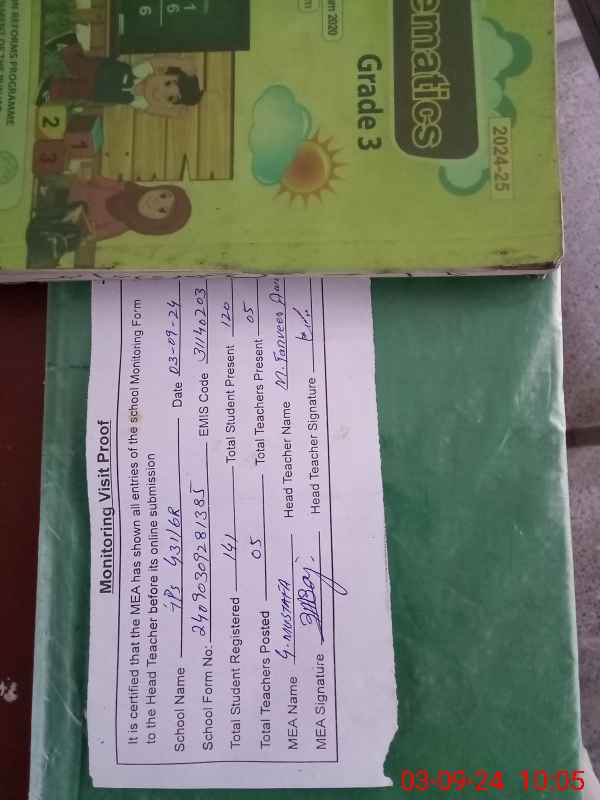 Monitoring Visit Proof
It is certified that the MEA has shown all entries of the school Monitoring Form
to the Head Teacher before its online submission
School Name GPS 431/6R Date 03-09-24
School Form No: 24090309281385 EMIS Code 31140203
Total Student Registered 141 Total Student Present 120
Total Teachers Posted 05 Total Teachers Present 05
MEA Name G. MUSTAFA Head Teacher Name M. Tanveer
MEA Signature Head Teacher Signature
ematics
Grade 3
2024-25
2020
1
6
16
2
1
3
N REFORMS PROGRAMME
03-09-24 10:05